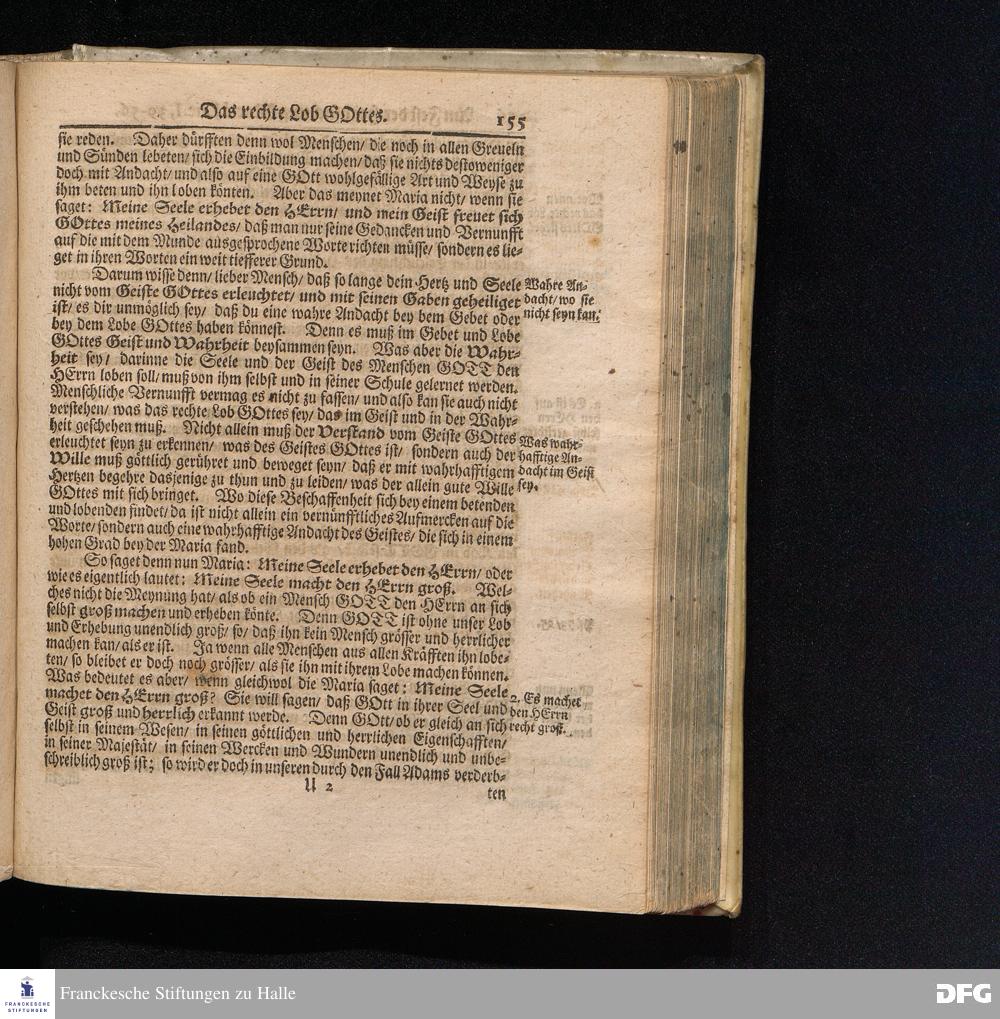 Das rechte Lob GOttes.
155
sie reden. Daher dürfften denn wol Menschen/ die noch in allen Greueln
und Sünden lebeten/ sich die Einbildung machen/ daß sie nichts destoweniger
doch mit Andacht/ und also auf eine GOtt wohlgefällige Art und Weyse zu
ihm beten und ihn loben könten. Aber das meynet Maria nicht/ wenn sie
saget: Meine Seele erhebet den HErrn/ und mein Geist freuet sich
GOttes meines Heilandes/ daß man nur seine Gedancken und Vernunfft
auf die mit dem Munde ausgesprochene Worte richten müsse/ sondern es lie-
get in ihren Worten ein weit tiefferer Grund.
Darum wisse denn/ lieber Mensch/ daß so lange dein Hertz und Seele
nicht vom Geiste GOttes erleuchtet/ und mit seinen Gaben geheiliget
ist/ es dir unmöglich sey/ daß du eine wahre Andacht bey bem Gebet oder
bey dem Lobe GOttes haben könnest. Denn es muß im Gebet und Lobe
GOttes Geist und Wahrheit beysammen seyn. Was aber die Wahr-
heit sey/ darinne die Seele und der Geist des Menschen GOTT den
HErrn loben soll/ muß von ihm selbst und in seiner Schule gelernet werden.
Menschliche Vernunfft vermag es nicht zu fassen/ und also kan sie auch nicht
verstehen/ was das rechte Lob GOttes sey/ das im Geist und in der Wahr-
heit geschehen muß. Nicht allein muß der Verstand vom Geiste GOttes
erleuchtet seyn zu erkennen/ was des Geistes GOttes ist/ sondern auch der
Wille muß göttlich gerühret und beweget seyn/ daß er mit wahrhafftigem
Hertzen begehre dasjenige zu thun und zu leiden/ was der allein gute Wille
GOttes mit sich bringet. Wo diese Beschaffenheit sich bey einem betenden
und lobenden findet/ da ist nicht allein ein vernünfftliches Aufmercken auf die
Worte/ sondern auch eine wahrhafftige Andacht des Geistes/ die sich in einem
hohen Grad bey der Maria fand.
So saget denn nun Maria: Meine Seele erhebet den HErrn/ oder
wie es eigentlich lautet: Meine Seele macht den HErrn groß. Wel-
ches nicht die Meynung hat/ als ob ein Mensch GOTT den HErrn an sich
selbst groß machen und erheben könte. Denn GOTT ist ohne unser Lob
und Erhebung unendlich groß/ so/ daß ihn kein Mensch grösser und herrlicher
machen kan/ als er ist. Ja wenn alle Menschen aus allen Kräfften ihn lobe-
ten/ so bleibet er doch noch grösser/ als sie ihn mit ihrem Lobe machen können.
Was bedeutet es aber/ wenn gleichwol die Maria saget: Meine Seele
machet den HErrn groß? Sie will sagen/ daß GOtt in ihrer Seel und
Geist groß und herrlich erkannt werde. Denn GOtt/ ob er gleich an sich
selbst in seinem Wesen/ in seinen göttlichen und herrlichen Eigenschafften/
in seiner Majestät/ in seinen Wercken und Wundern unendlich und unbe-
schreiblich groß ist; so wird er doch in unseren durch den Fall Adams verderb-
U 2
ten
Wahre An-
dacht/ wo sie
nicht seyn kan.
Was wahr-
hafftige An-
dacht im Geist
sey.
2. Es machet
den HErrn
recht groß.
Franckesche Stiftungen zu Halle
FRANCKESCHE
STIFTUNGEN
DFG